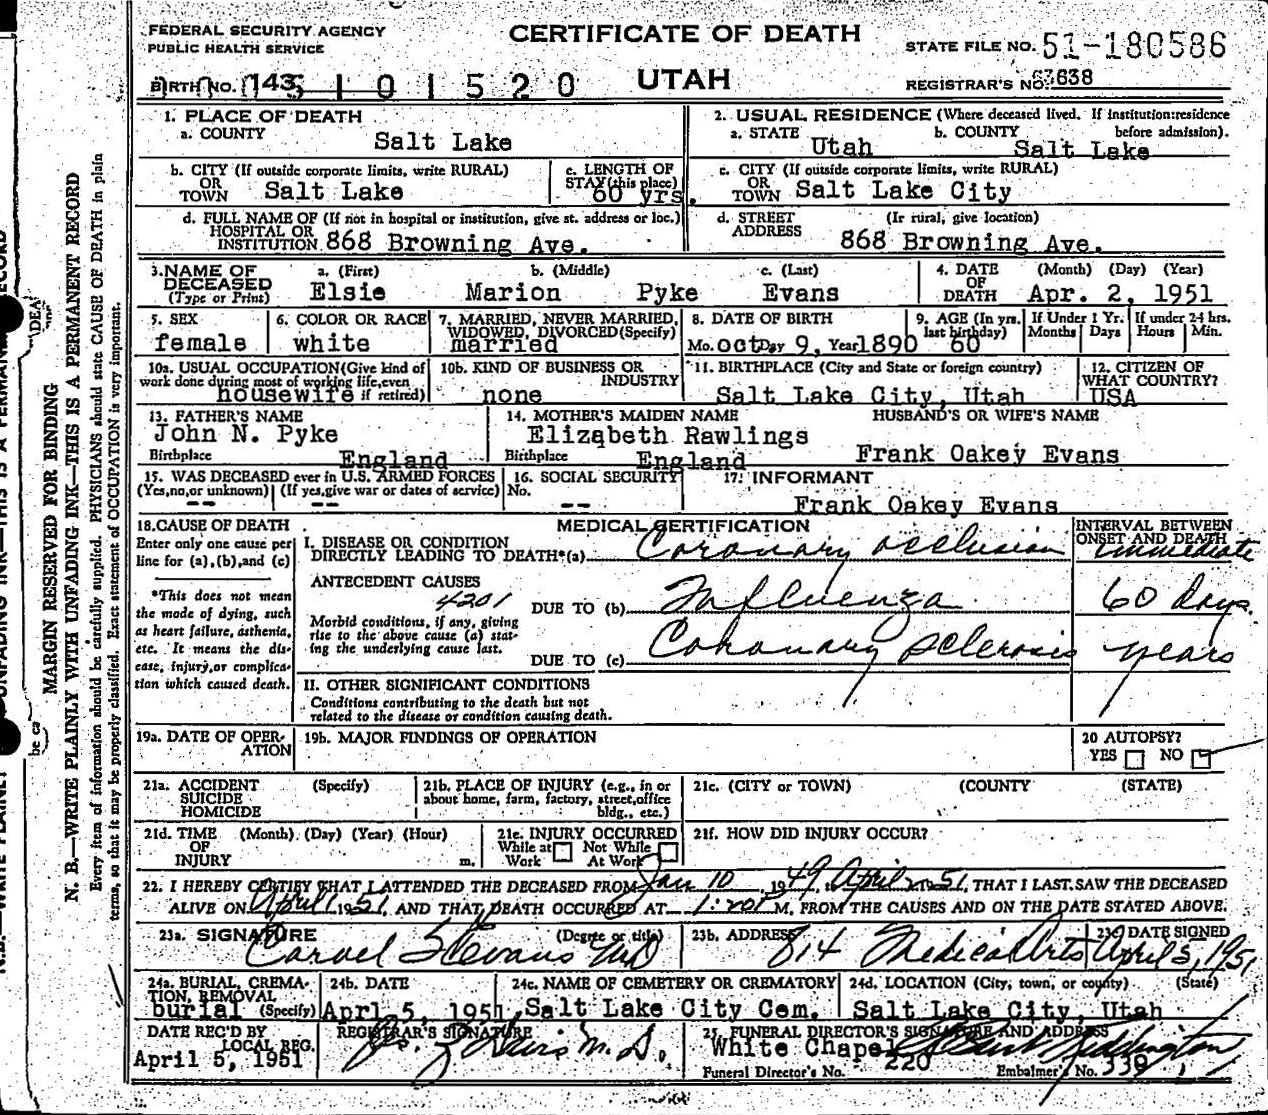 FEDERAL SECURITY AGENCY
PUBLIC HEALTH SERVICE
CERTIFICATE OF DEATH
STATE FILE NO. 51-180586
BIRTH NO. 143 5 1 0 1 5 2 0
UTAH
REGISTRAR'S NO. 638
1. PLACE OF DEATH
a. COUNTY Salt Lake
2. USUAL RESIDENCE (Where deceased lived. If institution:residence before admission).
a. STATE Utah b. COUNTY Salt Lake
b. CITY (If outside corporate limits, write RURAL)
OR
TOWN Salt Lake
c. LENGTH OF
STAY (this place)
60 yrs.
c. CITY (If outside corporate limits, write RURAL)
OR
TOWN Salt Lake City
d. FULL NAME OF (If not in hospital or institution, give st. address or loc.)
HOSPITAL OR
INSTITUTION 868 Browning Ave.
d. STREET (If rural, give location)
ADDRESS 868 Browning Ave.
3. NAME OF DECEASED (Type or Print)
a. (First) b. (Middle) c. (Last)
Elsie Marion Pyke Evans
4. DATE OF DEATH (Month) (Day) (Year)
Apr. 2, 1951
5. SEX
female
6. COLOR OR RACE
white
7. MARRIED, NEVER MARRIED,
WIDOWED, DIVORCED (Specify)
married
8. DATE OF BIRTH
Mo. oct Day 9, Year 1890
9. AGE (In yrs. last birthday)
60
If Under 1 Yr. Months Days
If under 24 hrs. Hours Min.
10a. USUAL OCCUPATION (Give kind of
work done during most of working life, even
if retired)
housewife
10b. KIND OF BUSINESS OR
INDUSTRY
none
11. BIRTHPLACE (City and State or foreign country)
Salt Lake City, Utah
12. CITIZEN OF
WHAT COUNTRY?
USA
13. FATHER'S NAME
John N. Pyke
Birthplace England
14. MOTHER'S MAIDEN NAME
Elizabeth Rawlings
Birthplace England
HUSBAND'S OR WIFE'S NAME
Frank Oakey Evans
15. WAS DECEASED ever in U.S. ARMED FORCES
(Yes, no, or unknown) (If yes, give war or dates of service)
-- --
16. SOCIAL SECURITY
No. --
17. INFORMANT
Frank Oakey Evans
18. CAUSE OF DEATH
Enter only one cause per
line for (a), (b), and (c)
*This does not mean
the mode of dying, such
as heart failure, asthenia,
etc. It means the dis-
ease, injury, or complica-
tion which caused death.
MEDICAL CERTIFICATION
INTERVAL BETWEEN
ONSET AND DEATH
I. DISEASE OR CONDITION
DIRECTLY LEADING TO DEATH*(a) Coronary occlusion immediate
ANTECEDENT CAUSES
4201
DUE TO (b) Influenza 60 days.
Morbid conditions, if any, giving
rise to the above cause (a) stat-
ing the underlying cause last.
DUE TO (c) Coronary sclerosis years
II. OTHER SIGNIFICANT CONDITIONS
Conditions contributing to the death but not
related to the disease or condition causing death.
19a. DATE OF OPER-
ATION
19b. MAJOR FINDINGS OF OPERATION
20 AUTOPSY?
YES NO
21a. ACCIDENT (Specify)
SUICIDE
HOMICIDE
21b. PLACE OF INJURY (e.g., in or
about home, farm, factory, street, office
bldg., etc.)
21c. (CITY or TOWN) (COUNTY) (STATE)
21d. TIME (Month) (Day) (Year) (Hour)
OF
INJURY m.
21e. INJURY OCCURRED
While at Work Not While At Work
21f. HOW DID INJURY OCCUR?
22. I HEREBY CERTIFY THAT I ATTENDED THE DECEASED FROM Jan 10, 1949, April 2 1951, THAT I LAST SAW THE DECEASED
ALIVE ON April 1 1951, AND THAT DEATH OCCURRED AT 1:20 P M, FROM THE CAUSES AND ON THE DATE STATED ABOVE.
23a. SIGNATURE (Degree or title)
Carvel MD
23b. ADDRESS
814 Medical Arts
23c. DATE SIGNED
April 5, 1951
24a. BURIAL, CREMA-
TION, REMOVAL
(Specify) burial
24b. DATE
Apr1 5, 1951
24c. NAME OF CEMETERY OR CREMATORY
Salt Lake City Cem.
24d. LOCATION (City, town, or county) (State)
Salt Lake City, Utah
DATE REC'D BY
LOCAL REG.
April 5, 1951
REGISTRAR'S SIGNATURE
M. D.
25. FUNERAL DIRECTOR'S SIGNATURE AND ADDRESS
White Chapel
Funeral Director's No. 220 Embalmer's No. 339
MARGIN RESERVED FOR BINDING
N. B.—WRITE PLAINLY WITH UNFADING INK—THIS IS A PERMANENT RECORD
Every item of information should be carefully supplied. PHYSICIANS should state CAUSE OF DEATH in plain
terms, so that it may be properly classified. Exact statement of OCCUPATION is very important.